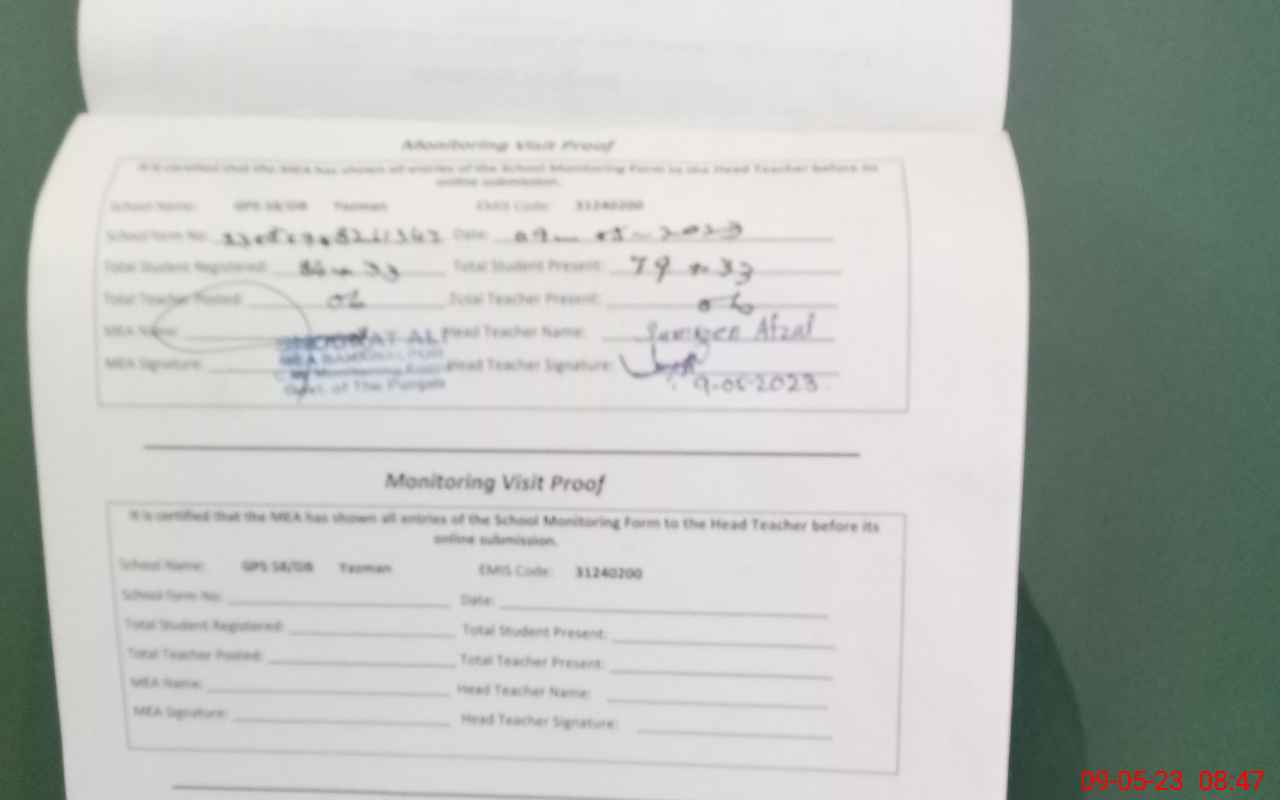 Monitoring Visit Proof
It is certified that the MEA has shown all entries of the School Monitoring Form to the Head Teacher before its
online submission.
School Name: GPS 58/DB Yazman EMIS Code: 31240200
School Form No: Date: 09-05-2023
Total Student Registered: Total Student Present:
Total Teacher Posted: Total Teacher Present:
MEA Name: Head Teacher Name: Afzal
MEA Signature: Head Teacher Signature:
Govt. of The Punjab
9-05-2023
Monitoring Visit Proof
It is certified that the MEA has shown all entries of the School Monitoring Form to the Head Teacher before its
online submission.
School Name: GPS 58/DB Yazman EMIS Code: 31240200
School Form No: Date:
Total Student Registered: Total Student Present:
Total Teacher Posted: Total Teacher Present:
MEA Name: Head Teacher Name:
MEA Signature: Head Teacher Signature:
09-05-23 08:47